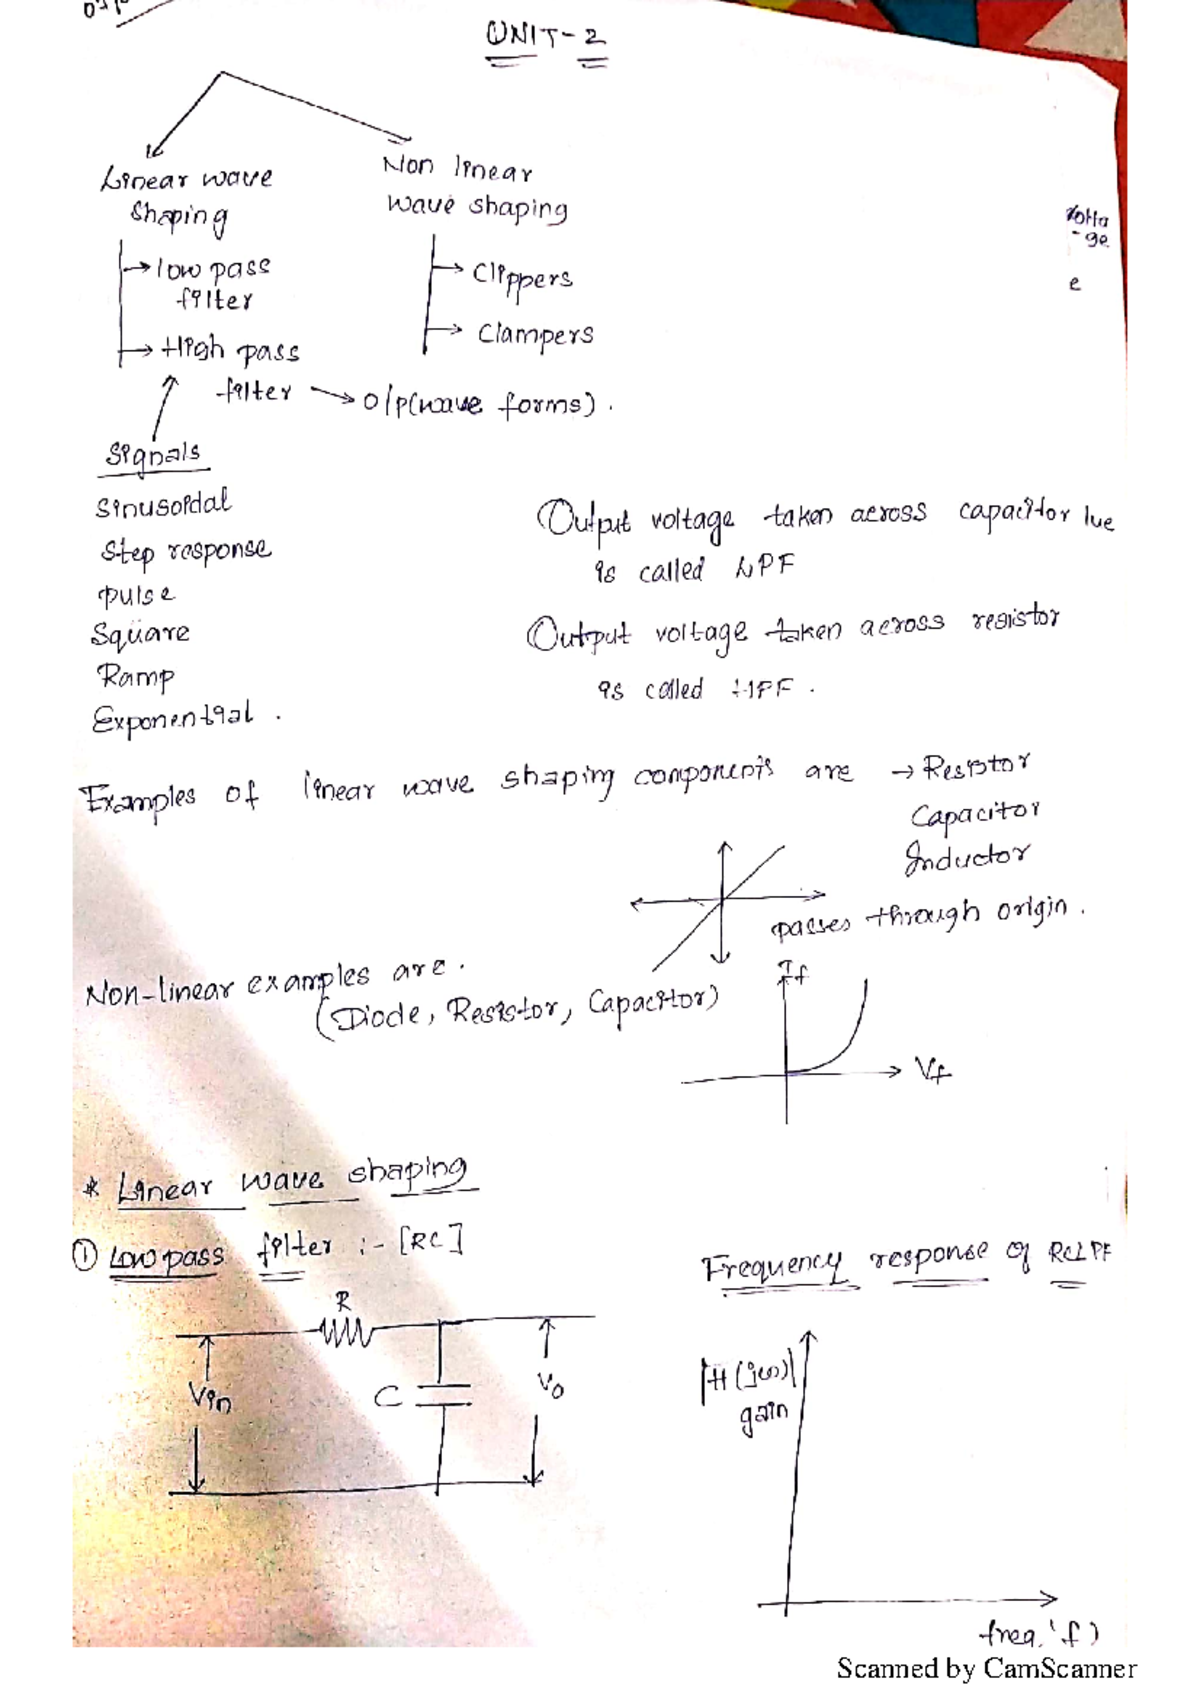 UNIT-2
Linear wave
shaping
Non linear
wave shaping
→ low pass
filter
→ High pass
filter → O/P(wave forms).
→ Clippers
→ Clampers
Signals
Sinusoidal
Step response
pulse
Square
Ramp
Exponential.
Output voltage taken across capacitor
is called LPF
Output voltage taken across resistor
is called HPF.
Examples of linear wave shaping components are → Resistor
Capacitor
Inductor
passes through origin.
Non-linear examples are.
(Diode, Resistor, Capacitor)
If
Vf
* Linear wave shaping
① Low pass filter :- [RC]
R
Vin
C
Vo
Frequency response of RCLPF
|H(jω)|
gain
freq.'f)
Scanned by CamScanner